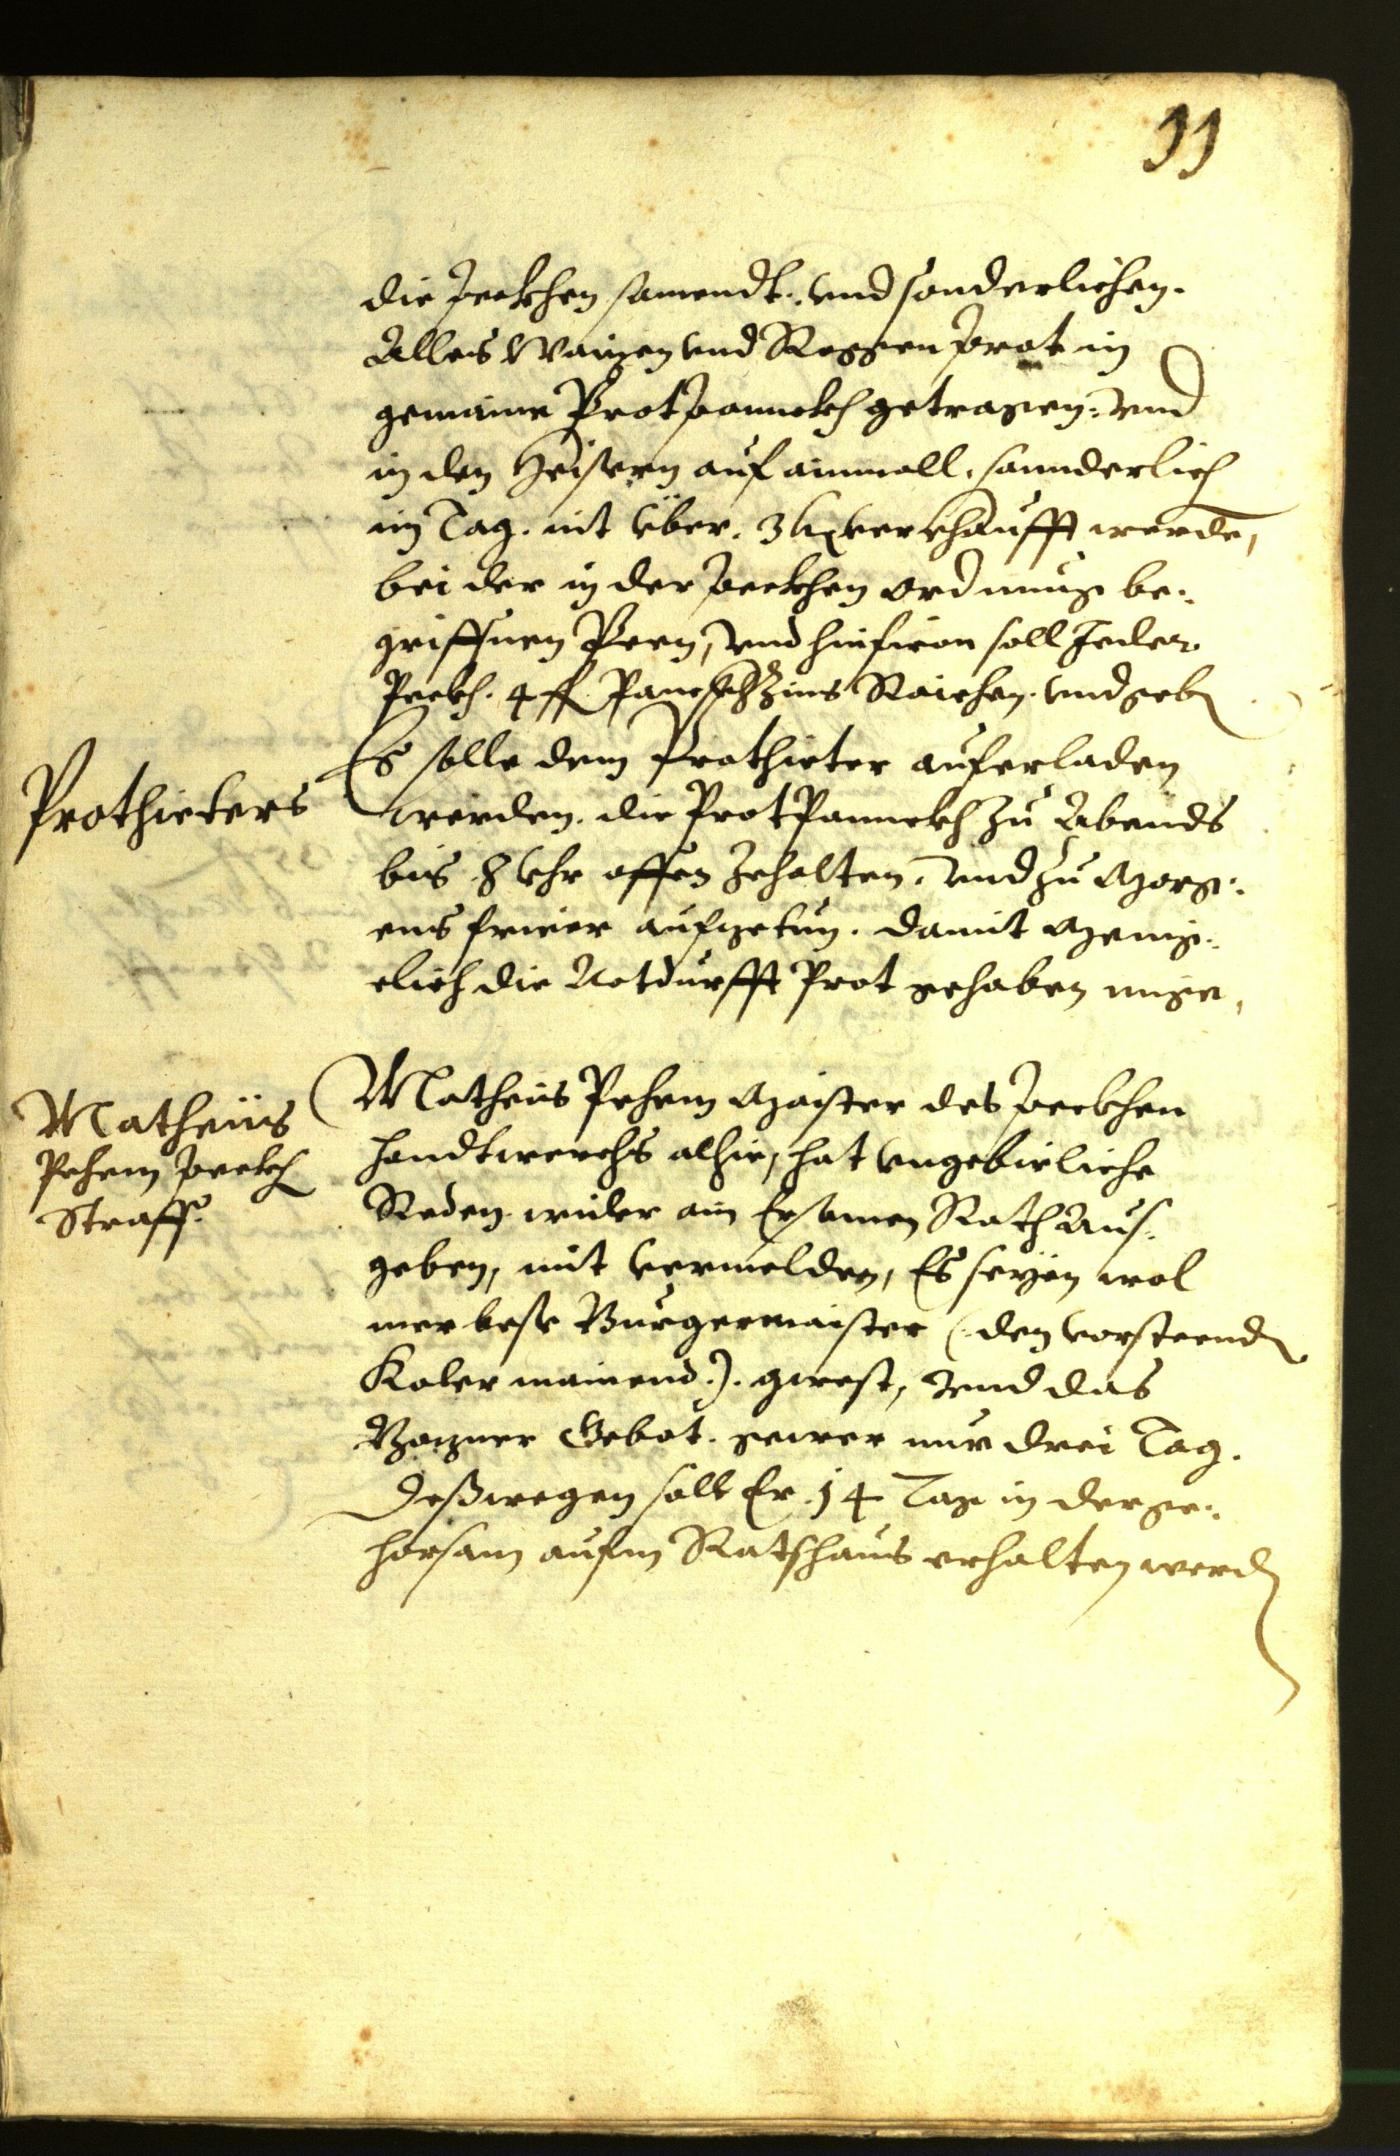 11
die Peckhen samendt: vnd sonderlichen.
Alles Waizen vnd Roggen Prot in
gemaine Protpannckh getragen: vnd
in den Heisern auf ainmall, sonnderlich
im Tag. nit über. 3 kr verkhaufft werde,
bei der in der Peckhen ordnung be:
griffnen Peen, vnd hinfüron soll Jeder
Peckh. 4 fl Panckhzins Raichen. vnd geben
Prothieters
Es solle dem Prothieter auferladen
werden. die Prot Pannckh zu Abends
bis 8 Vhr offen zehalten, vnd zu Morg:
ens frieer aufzetun. damit Menig:
elich die Notdurfft Prot gehaben müge,
Matheüs
Pehem Peckh
Straff.
Matheüs Pehem Maister des Peckhen
handtwerchs alhie, hat vngebirliche
Reden wider ain Ersamen Rath Aus:
geben, mit vermelden, Es seyen wol
mer bese Burgermaister (: den vorsteenden
Koler mainend:). gwest, vnd das
Bozner Gebot. gewer nur drei Tag.
Deßwegen soll Er. 14 Tag in der ge:
horsam aufm Ratshaus erhalten werden